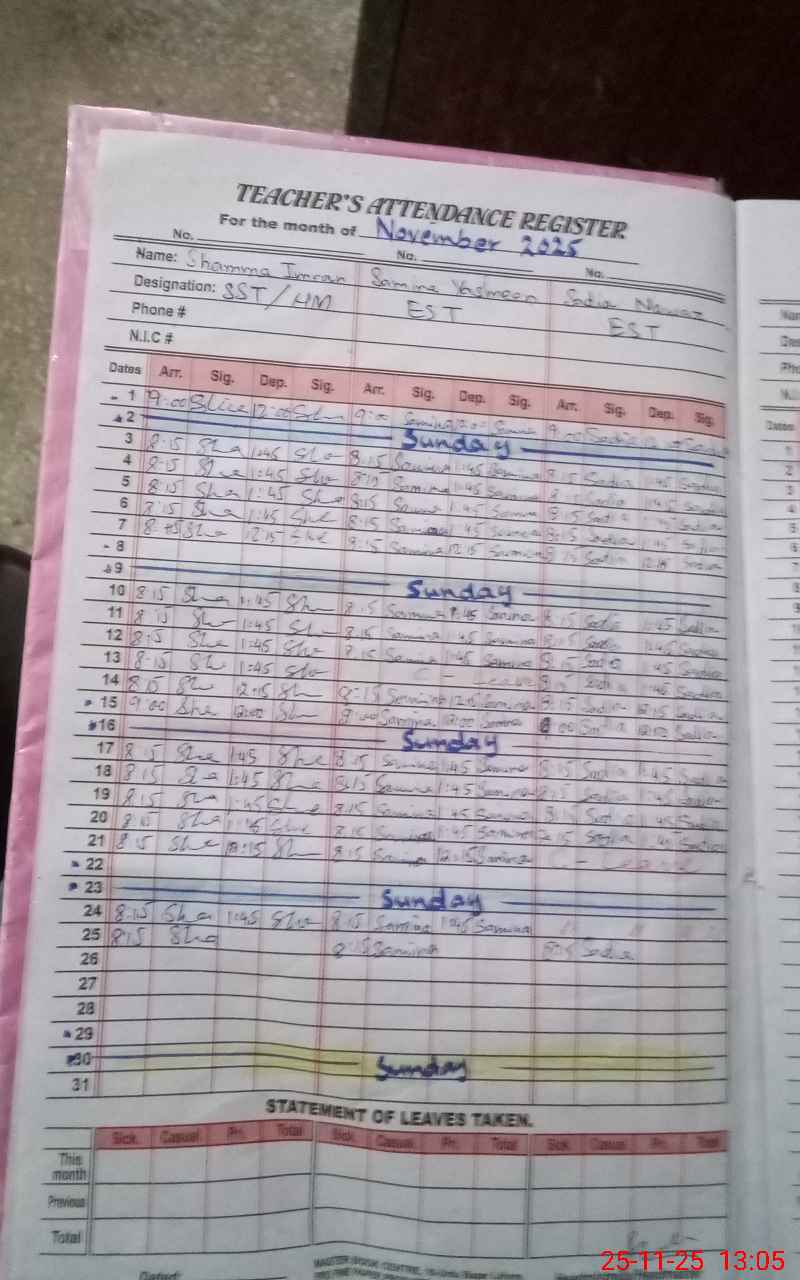 TEACHER'S ATTENDANCE REGISTER
For the month of November 2025
No. No. No.
Name: Shamma Imran Samina Yasmeen Sadia Nawaz
Designation: SST/HM EST EST
Phone #
N.I.C #
Dates Arr. Sig. Dep. Sig. Arr. Sig. Dep. Sig. Arr. Sig. Dep. Sig.
1 9:00 12:00 Sha 9:00 Samina 12:00 9:00 Sadia Sadia
2 Sunday
3 8:15 Sha 1:45 Sha 8:15 Samina 1:45 Samina 8:15 Sadia 1:45 Sadia
4 8:15 Sha 1:45 Sha 8:15 Samina 1:45 Samina 8:15 Sadia 1:45 Sadia
5 8:15 Sha 1:45 Sha 8:15 Samina 1:45 Samina 8:15 Sadia 1:45 Sadia
6 8:15 Sha 1:45 Sha 8:15 Samina 1:45 Samina 8:15 Sadia 1:45 Sadia
7 Sha 12:15 Sha 8:15 Samina 12:15 Samina 8:15 Sadia 12:15 Sadia
8
9 Sunday
10 8:15 Sha 1:45 Sha 8:15 Samina 1:45 Samina 8:15 Sadia 1:45 Sadia
11 8:15 Sha 1:45 Sha 8:15 Samina 1:45 Samina 8:15 Sadia 1:45 Sadia
12 8:15 Sha 1:45 Sha 8:15 Samina 1:45 Samina 8:15 Sadia 1:45 Sadia
13 8:15 Sha 1:45 Sha C - Leave 8:15 Sadia 1:45 Sadia
14 8:15 Sha 12:15 Sha 8:15 Samina 12:15 Samina 8:15 Sadia 12:15 Sadia
15 9:00 Sha 12:00 Sha 9:00 Samina 12:00 Samina 9:00 Sadia 12:00 Sadia
16 Sunday
17 8:15 Sha 1:45 Sha 8:15 Samina 1:45 Samina 8:15 Sadia 1:45 Sadia
18 8:15 Sha 1:45 Sha 8:15 Samina 1:45 Samina 8:15 Sadia 1:45 Sadia
19 8:15 Sha 1:45 Sha 8:15 Samina 1:45 Samina 8:15 Sadia 1:45 Sadia
20 8:15 Sha 1:45 Sha 8:15 Samina 1:45 Samina 8:15 Sadia 1:45 Sadia
21 8:15 Sha 12:15 Sha 8:15 Samina 12:15 Samina C - Leave
22
23 Sunday
24 8:15 Sha 1:45 Sha 8:15 Samina 1:45 Samina " " "
25 8:15 Sha 8:15 Samina 8:15 Sadia
26
27
28
29
30 Sunday
31
STATEMENT OF LEAVES TAKEN.
Sick. Casual. Pri. Total Sick. Casual. Pri. Total Sick. Casual. Pri. Total
This month
Previous
Total
Dated:
25-11-25 13:05